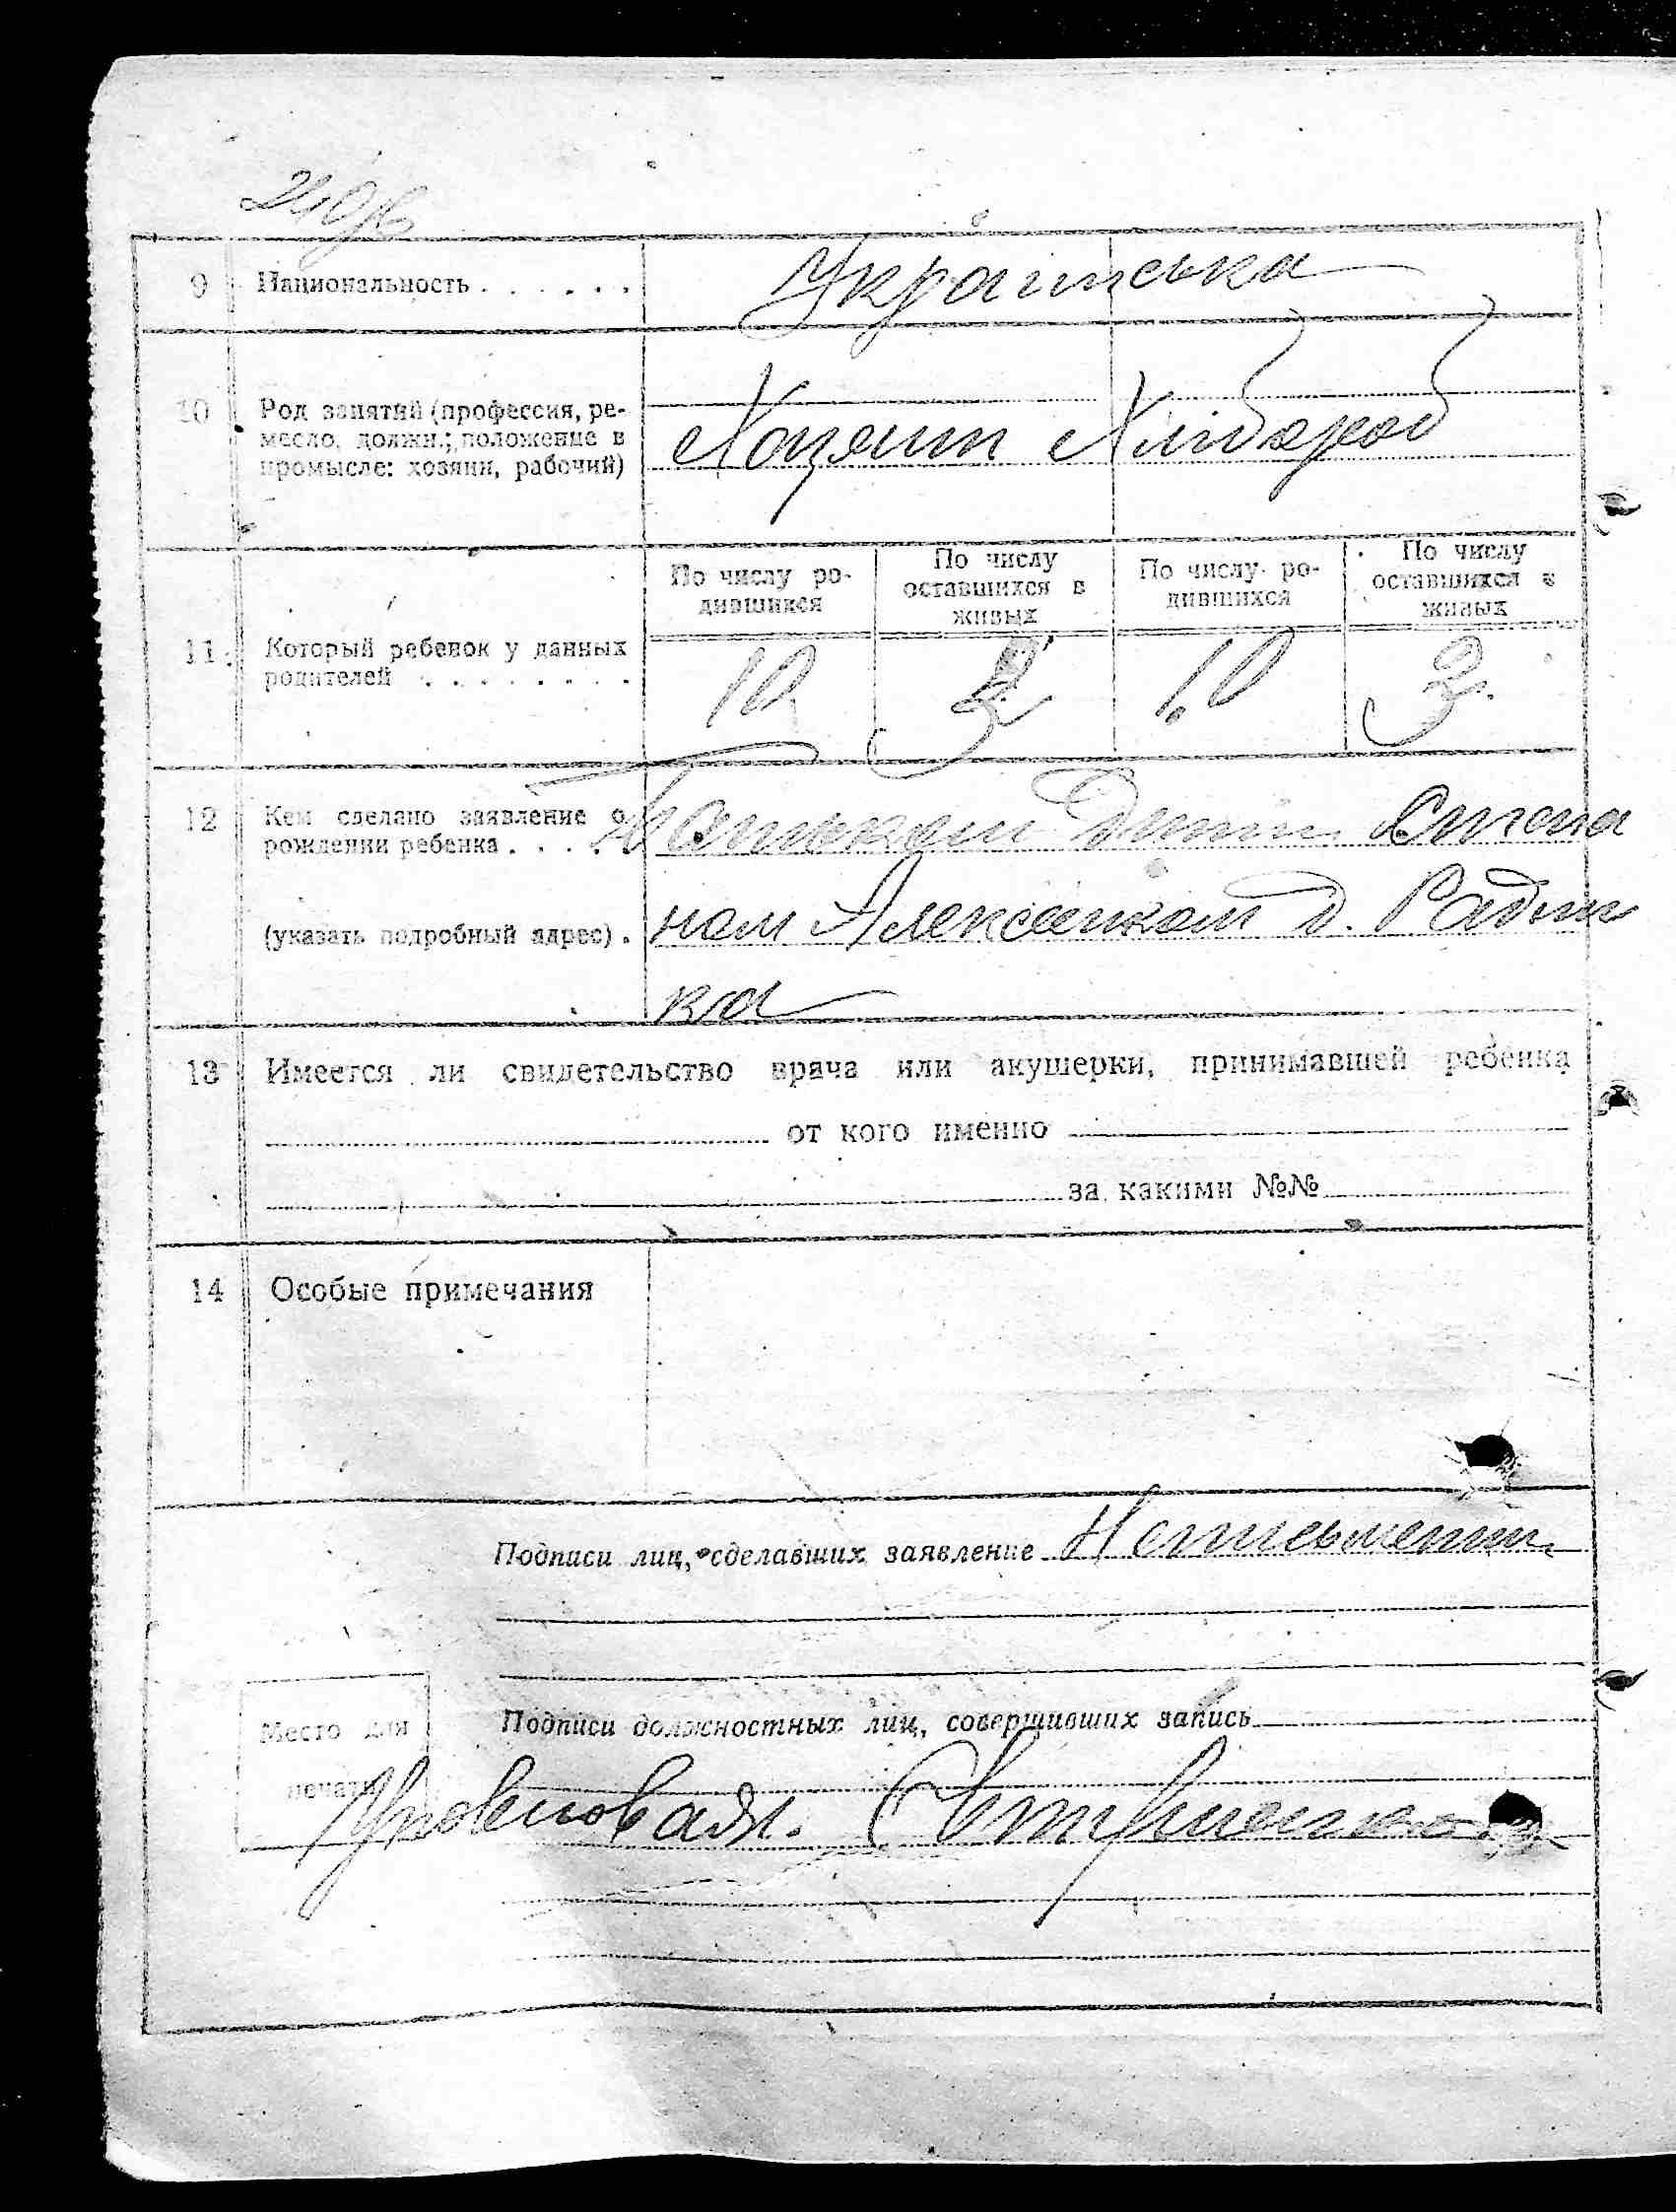 9 Национальность . . . . . . Українська
10 Род занятий (профессия, ре-
месло, должн.; положение в
промысле: хозяин, рабочий)
Хозяин Хлібороб
По числу ро-
дившихся
По числу
оставшихся в
живых
По числу ро-
дившихся
По числу
оставшихся в
живых
11 Который ребенок у данных
родителей . . . . . . . .
10 3 10 3
12 Кем сделано заявление о
рождении ребенка . . . .
Батьком
(указать подробный адрес) .
ном д.
ка
13 Имеется ли свидетельство врача или акушерки, принимавшей ребенка
от кого именно
за какими №№
14 Особые примечания
Подписи лиц, сделавших заявление Неписьменний
Место для
печати
Подписи должностных лиц, совершивших запись